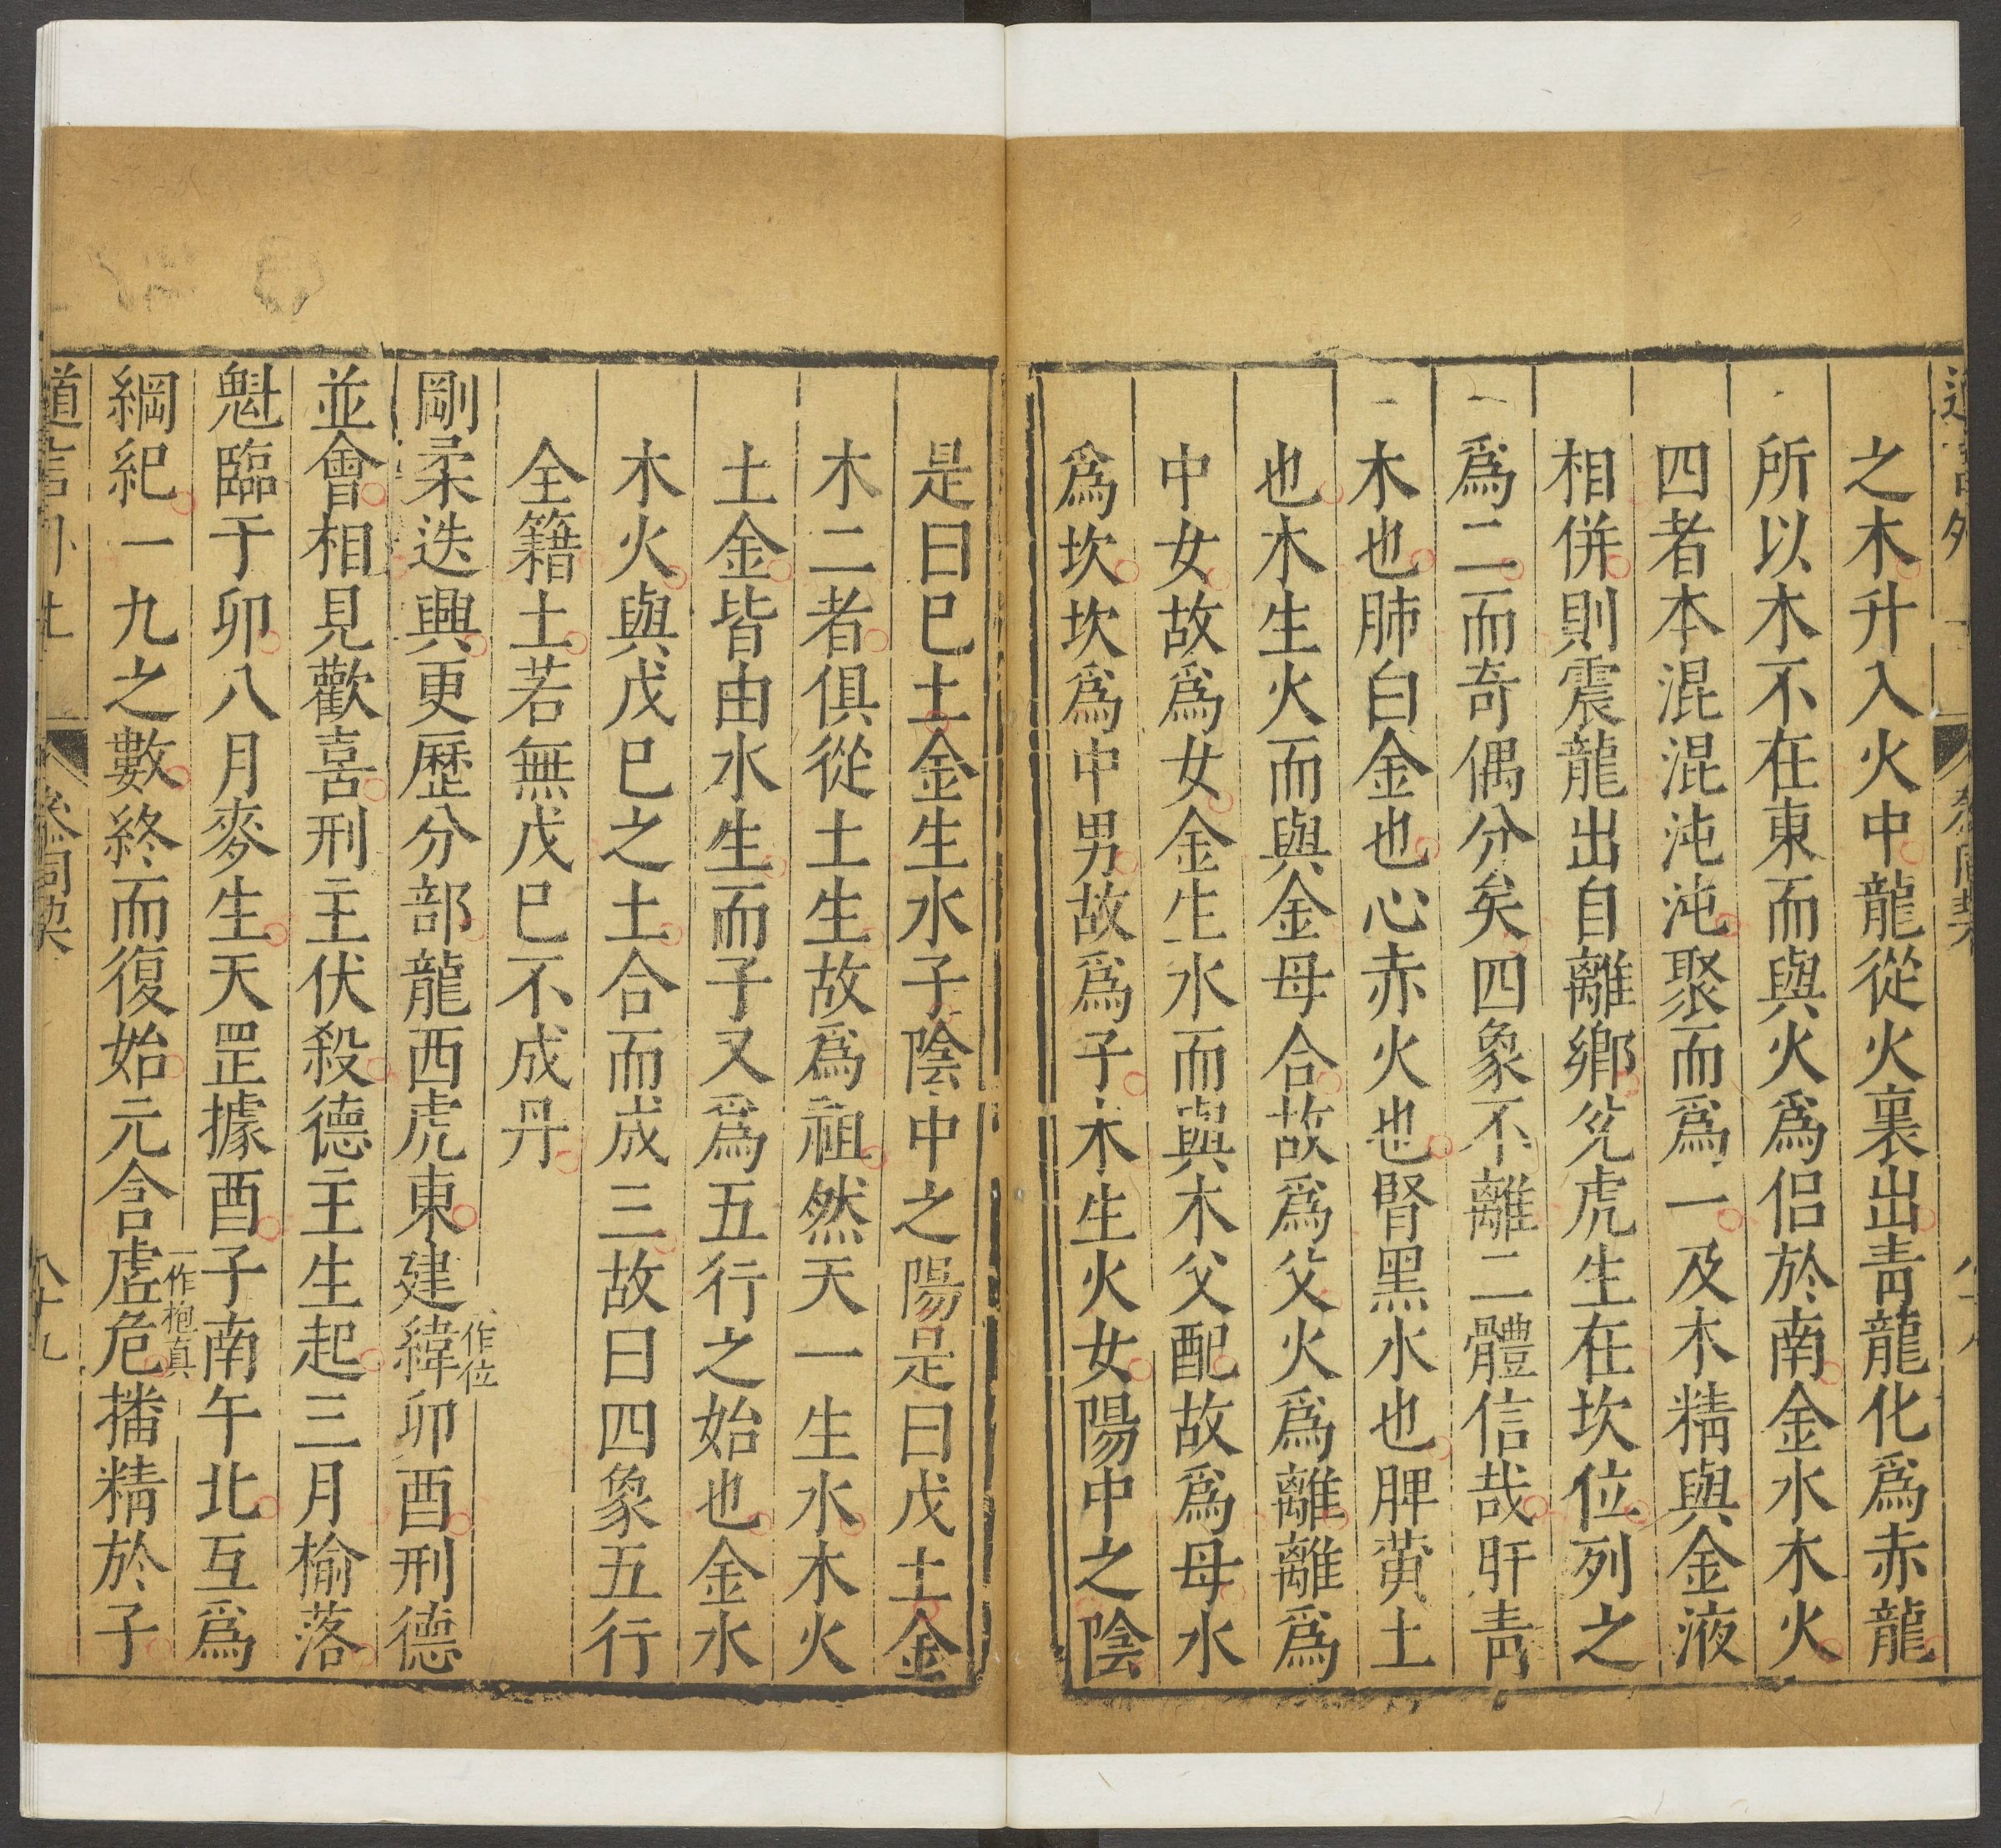 之木升入火中龍從火裏出青龍化爲赤龍
所以木不在東而與火爲侣於南金水木火
四者本混混沌沌聚而爲一及木精與金液
相併則震龍出自離鄉兊虎生在坎位列之
爲二而奇偶分矣四象不離二體信哉肝青
木也肺白金也心赤火也腎黑水也脾黄土
也木生火而與金母合故爲父火爲離離爲
中女故爲女金生水而與木父配故爲母水
爲坎坎爲中男故爲子木生火女陽中之陰
是曰巳土金生水子陰中之陽是曰戊土金
木二者俱從土生故爲祖然天一生水木火
土金皆由水生而子又爲五行之始也金水
木火與戊巳之土合而成三故曰四象五行
全籍土若無戊巳不成丹
剛柔迭興更歷分部龍西虎東建緯作位卯酉刑德
並會相見歡喜刑主伏殺德主生起三月榆落
魁臨于卯八月麥生天罡據酉子南午北互爲
綱紀一九之數終而復始元含虛危一作抱真播精於子
道言外
參同契
八十九